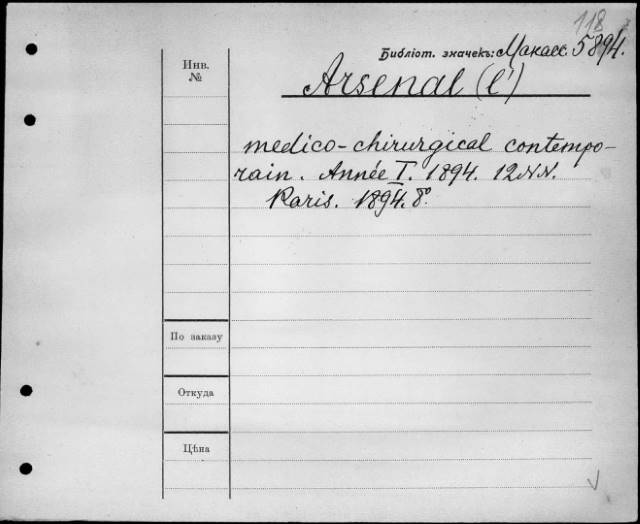 118
Библіот. значекъ: Макасс. 5894.
Инв.
№
Arsenal (l')
medico-chirurgical contempo-
rain. Année I. 1894. 12 NN.
Paris. 1894. 8°.
По заказу
Откуда
Цѣна